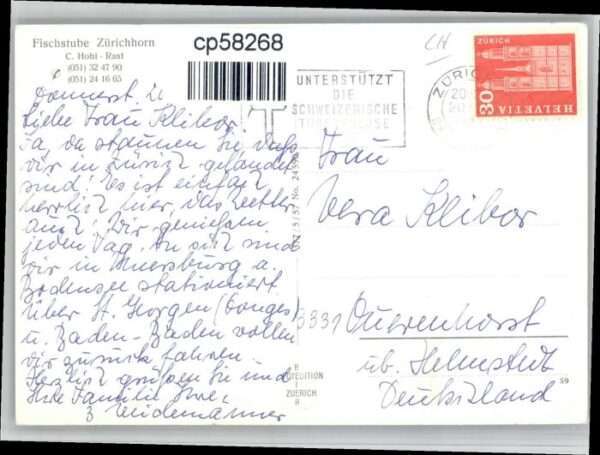 Fischstube Zürichhorn
C. Hohl - Rast
(051) 32 47 90
(051) 24 16 65
cp58268
CH
UNTERSTÜTZT
DIE
SCHWEIZERISCHE
ZÜRICH
20
ZÜRICH
30
HELVETIA
Donnerst.
Liebe Frau Klibor,
Ja, da staunen Sie daß
wir in Zürich gelandet
sind! Es ist einfach
herrlich hier, das Wetter
auch. Wir genießen
jeden Tag. An sich sind
wir in Meersburg a.
Bodensee stationiert
Über St. Georgen (Gonges)
u. Baden-Baden wollen
wir zurück fahren.
Herzlich grüßen Sie und
Ihre Familie Ihre
3 Weidemänner
Frau
Vera Klibor
3331 Querenhorst
üb. Helmstedt
Deutschland
EDITION
ZUERICH
59